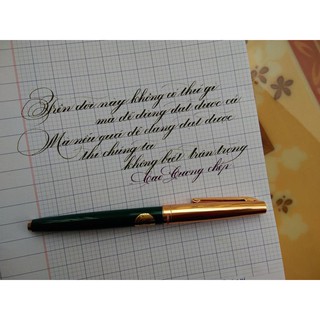 Trên đời này không có thứ gì
mà dễ dàng đạt được cả
Mà nếu quá dễ dàng đạt được
thì chúng ta
không biết trân trọng